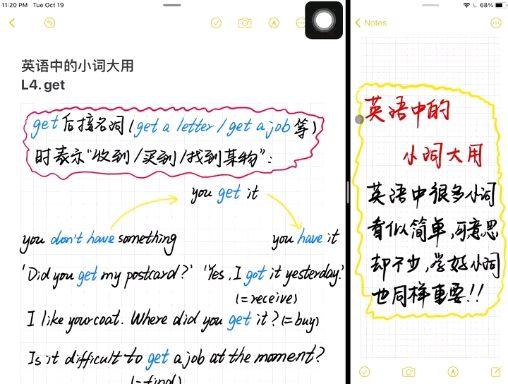 11:20 PM Tue Oct 19
68%
Notes
英语中的小词大用
L4. get
get 后接名词 (get a letter / get a job 等)
时表示"收到/买到/找到某物":
you get it
you don't have something
you have it
'Did you get my postcard?' 'Yes, I got it yesterday.'
(= receive)
I like your coat. Where did you get it? (= buy)
Is it difficult to get a job at the moment?
(= find)
英语中的
小词大用
英语中很多小词
看似简单,可意思
却不少,学好小词
也同样重要!!